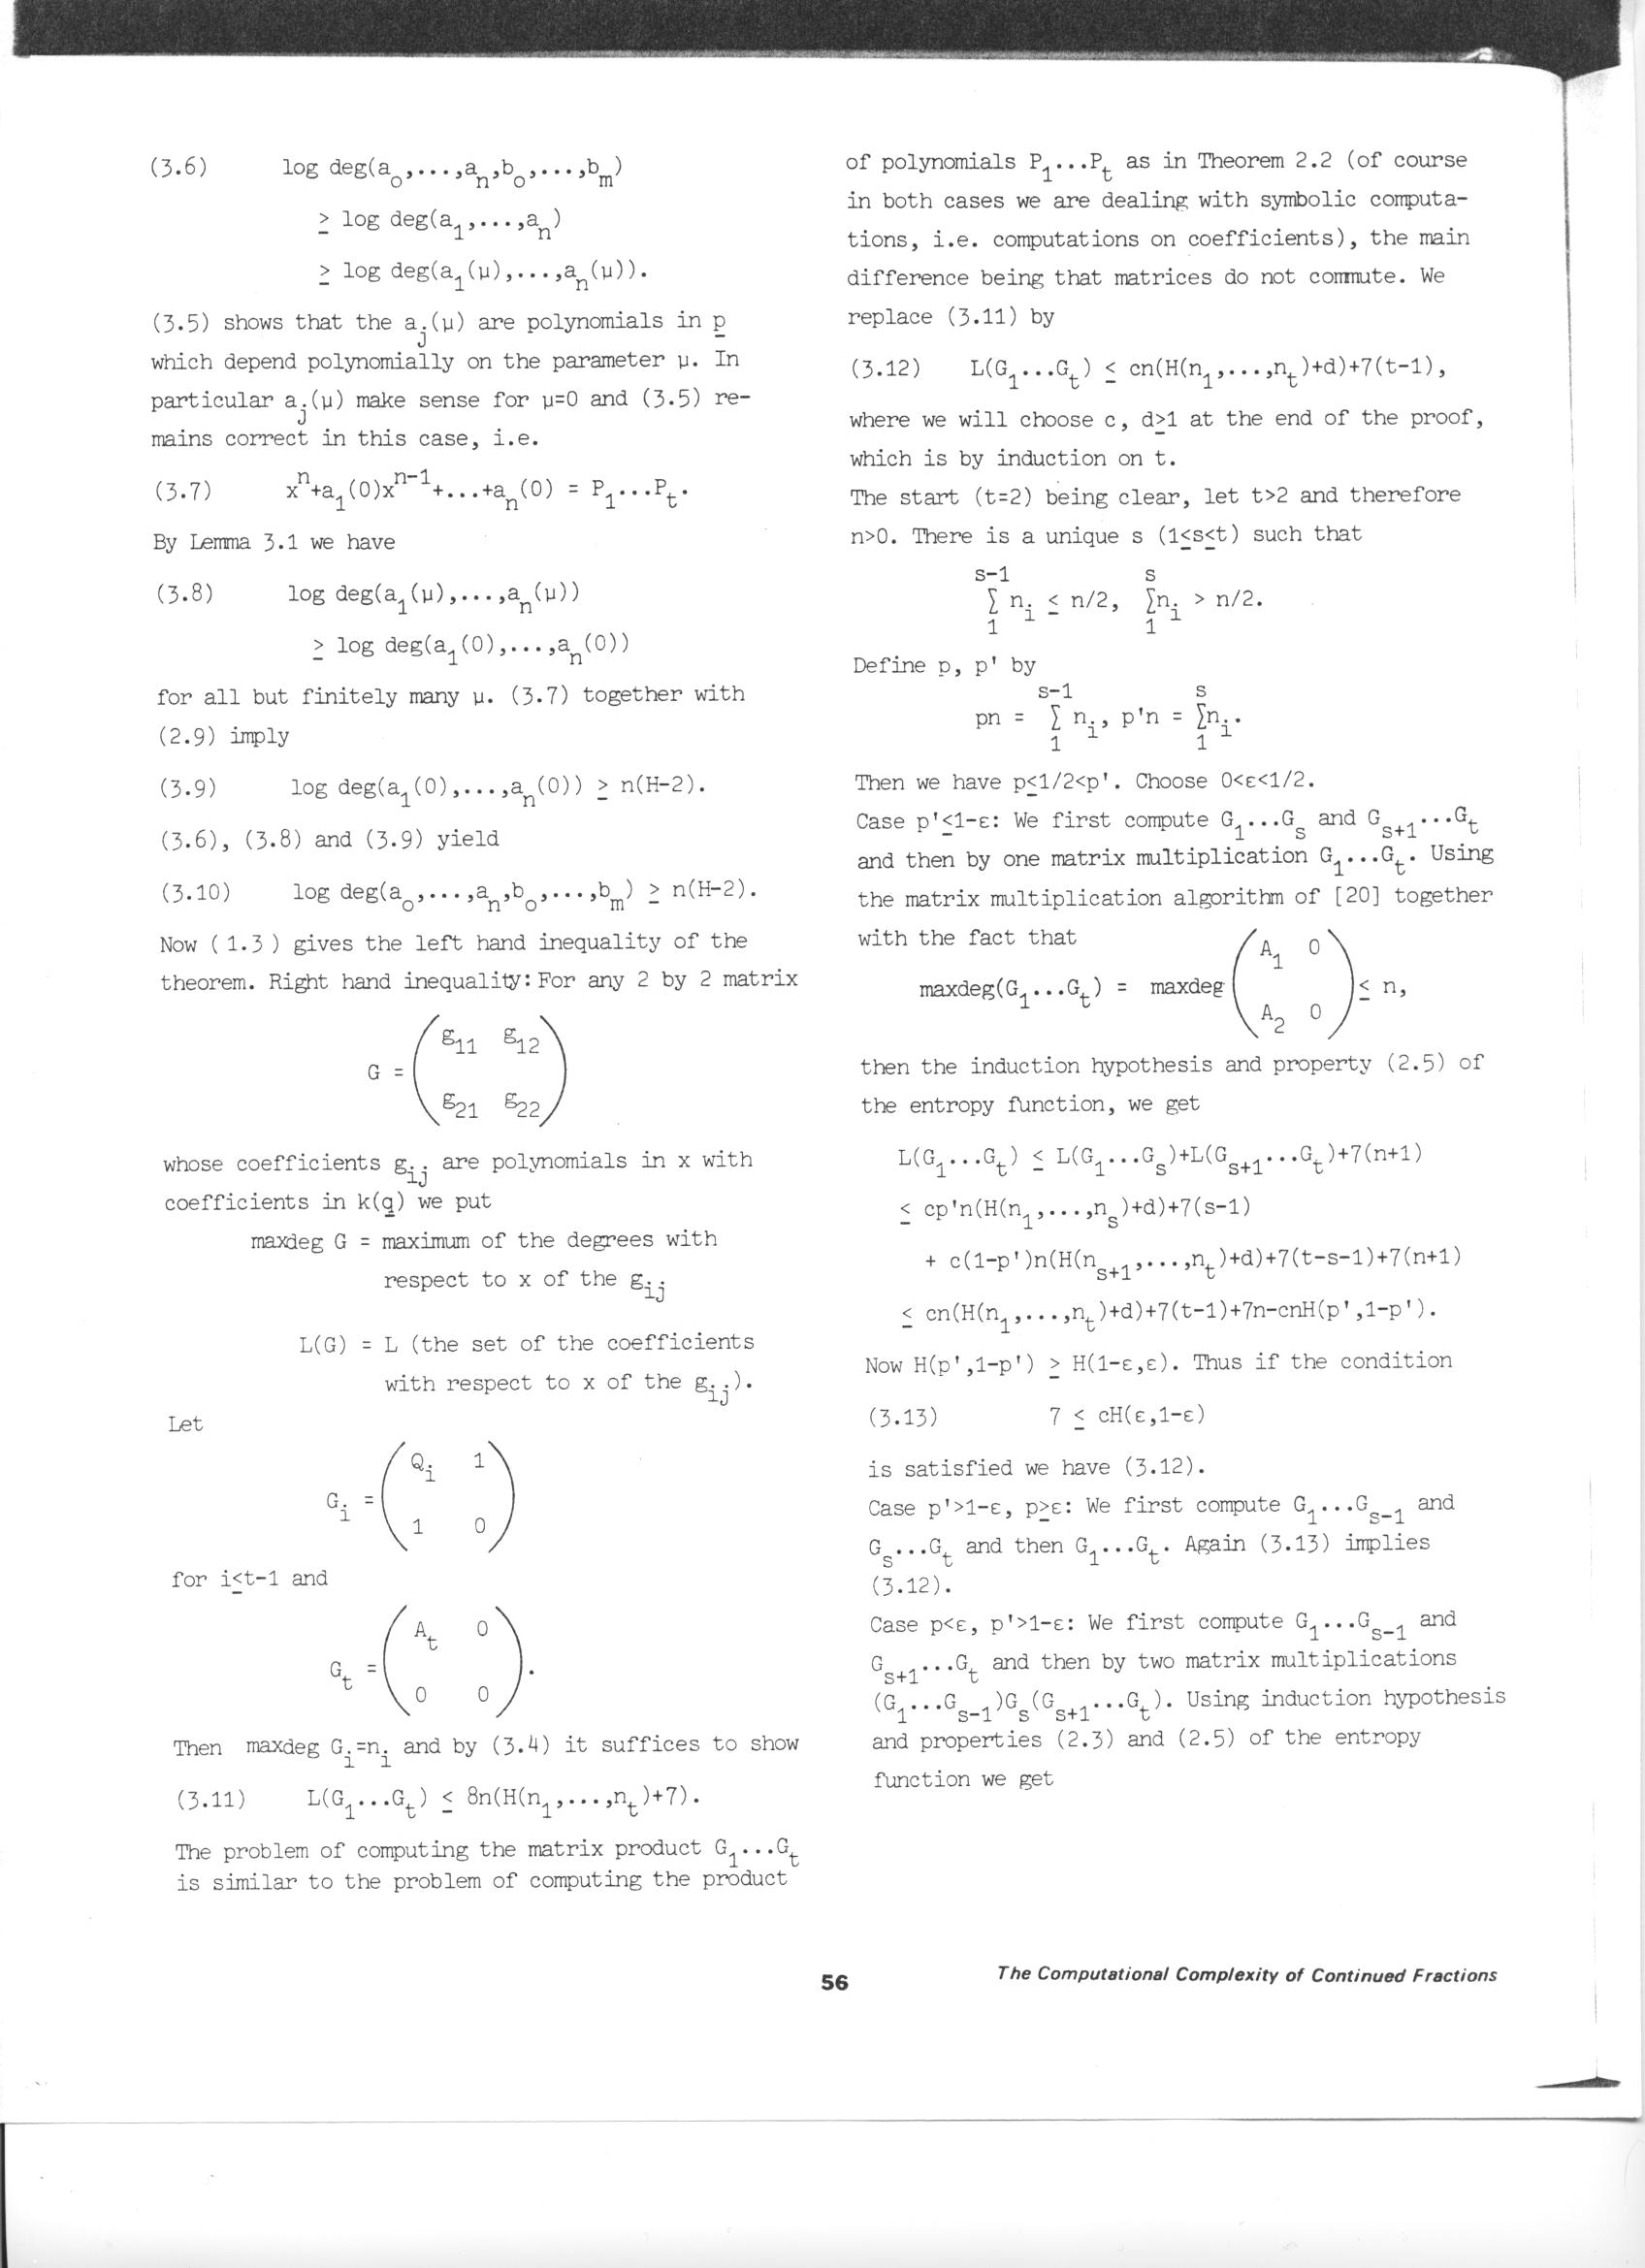 (3.6) log deg(a_o,...,a_n,b_o,...,b_m)
≥ log deg(a_1,...,a_n)
≥ log deg(a_1(μ),...,a_n(μ)).
(3.5) shows that the a_j(μ) are polynomials in p
which depend polynomially on the parameter μ. In
particular a_j(μ) make sense for μ=0 and (3.5) re-
mains correct in this case, i.e.
(3.7) x^n+a_1(0)x^{n-1}+...+a_n(0) = P_1...P_t.
By Lemma 3.1 we have
(3.8) log deg(a_1(μ),...,a_n(μ))
≥ log deg(a_1(0),...,a_n(0))
for all but finitely many μ. (3.7) together with
(2.9) imply
(3.9) log deg(a_1(0),...,a_n(0)) ≥ n(H-2).
(3.6), (3.8) and (3.9) yield
(3.10) log deg(a_o,...,a_n,b_o,...,b_m) ≥ n(H-2).
Now ( 1.3 ) gives the left hand inequality of the
theorem. Right hand inequality: For any 2 by 2 matrix
g_11 g_12
G =
g_21 g_22
whose coefficients g_ij are polynomials in x with
coefficients in k(q) we put
maxdeg G = maximum of the degrees with
respect to x of the g_ij
L(G) = L (the set of the coefficients
with respect to x of the g_ij).
Let
Q_i 1
G_i =
1 0
for i≤t-1 and
A_t 0
G_t = .
0 0
Then maxdeg G_i=n_i and by (3.4) it suffices to show
(3.11) L(G_1...G_t) ≤ 8n(H(n_1,...,n_t)+7).
The problem of computing the matrix product G_1...G_t
is similar to the problem of computing the product
of polynomials P_1...P_t as in Theorem 2.2 (of course
in both cases we are dealing with symbolic computa-
tions, i.e. computations on coefficients), the main
difference being that matrices do not commute. We
replace (3.11) by
(3.12) L(G_1...G_t) ≤ cn(H(n_1,...,n_t)+d)+7(t-1),
where we will choose c, d≥1 at the end of the proof,
which is by induction on t.
The start (t=2) being clear, let t>2 and therefore
n>0. There is a unique s (1≤s≤t) such that
s-1 s
∑ n_i ≤ n/2, ∑n_i > n/2.
1 1
Define p, p' by
s-1 s
pn = ∑ n_i, p'n = ∑n_i.
1 1
Then we have p≤1/2<p'. Choose 0<ε<1/2.
Case p'≤1-ε: We first compute G_1...G_s and G_{s+1}...G_t
and then by one matrix multiplication G_1...G_t. Using
the matrix multiplication algorithm of [20] together
with the fact that
A_1 0
maxdeg(G_1...G_t) = maxdeg ≤ n,
A_2 0
then the induction hypothesis and property (2.5) of
the entropy function, we get
L(G_1...G_t) ≤ L(G_1...G_s)+L(G_{s+1}...G_t)+7(n+1)
≤ cp'n(H(n_1,...,n_s)+d)+7(s-1)
+ c(1-p')n(H(n_{s+1},...,n_t)+d)+7(t-s-1)+7(n+1)
≤ cn(H(n_1,...,n_t)+d)+7(t-1)+7n-cnH(p',1-p').
Now H(p',1-p') ≥ H(1-ε,ε). Thus if the condition
(3.13) 7 ≤ cH(ε,1-ε)
is satisfied we have (3.12).
Case p'>1-ε, p≥ε: We first compute G_1...G_{s-1} and
G_s...G_t and then G_1...G_t. Again (3.13) implies
(3.12).
Case p<ε, p'>1-ε: We first compute G_1...G_{s-1} and
G_{s+1}...G_t and then by two matrix multiplications
(G_1...G_{s-1})G_s(G_{s+1}...G_t). Using induction hypothesis
and properties (2.3) and (2.5) of the entropy
function we get
56
The Computational Complexity of Continued Fractions